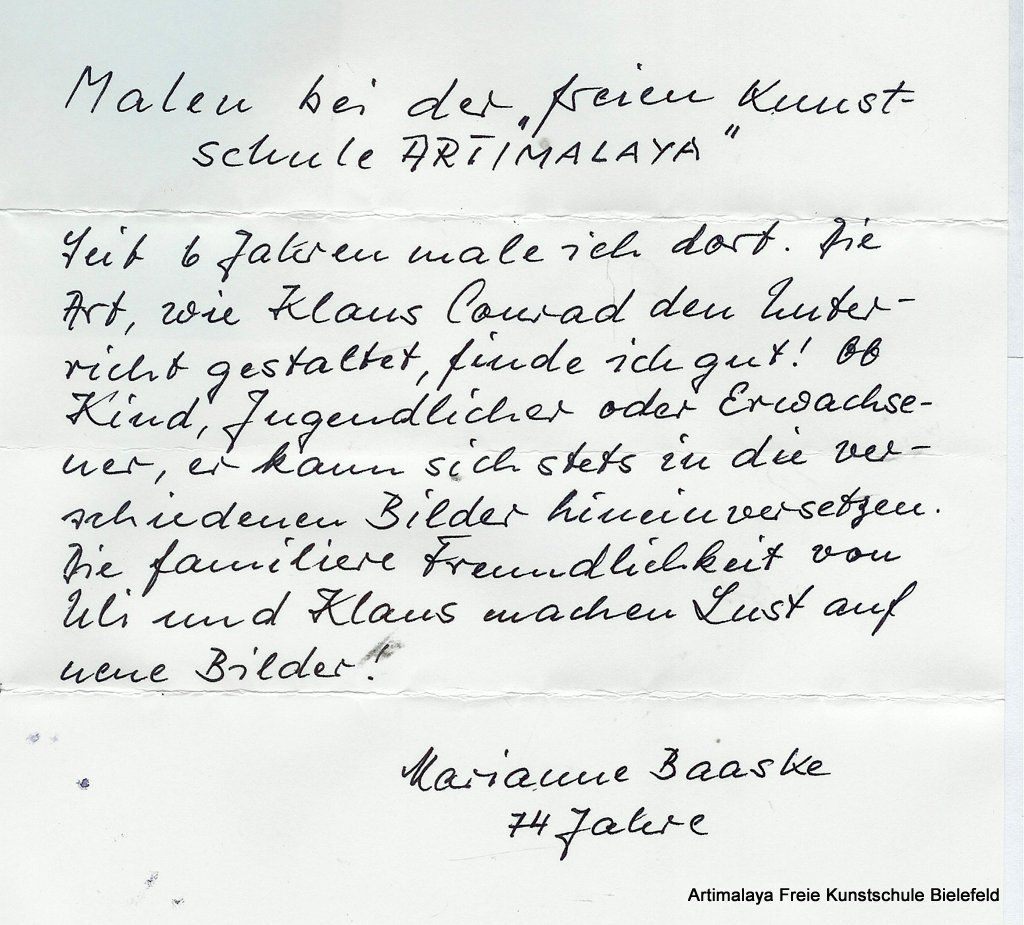 Malen bei der „freien Kunst-
schule ARTIMALAYA"
Seit 6 Jahren male ich dort. Die
Art, wie Klaus Conrad den Unter-
richt gestaltet, finde ich gut! Ob
Kind, Jugendlicher oder Erwachse-
ner, er kann sich stets in die ver-
schiedenen Bilder hineinversetzen.
Die familiere Freundlichkeit von
Uli und Klaus machen Lust auf
neue Bilder!
Marianne Baaske
74 Jahre
Artimalaya Freie Kunstschule Bielefeld